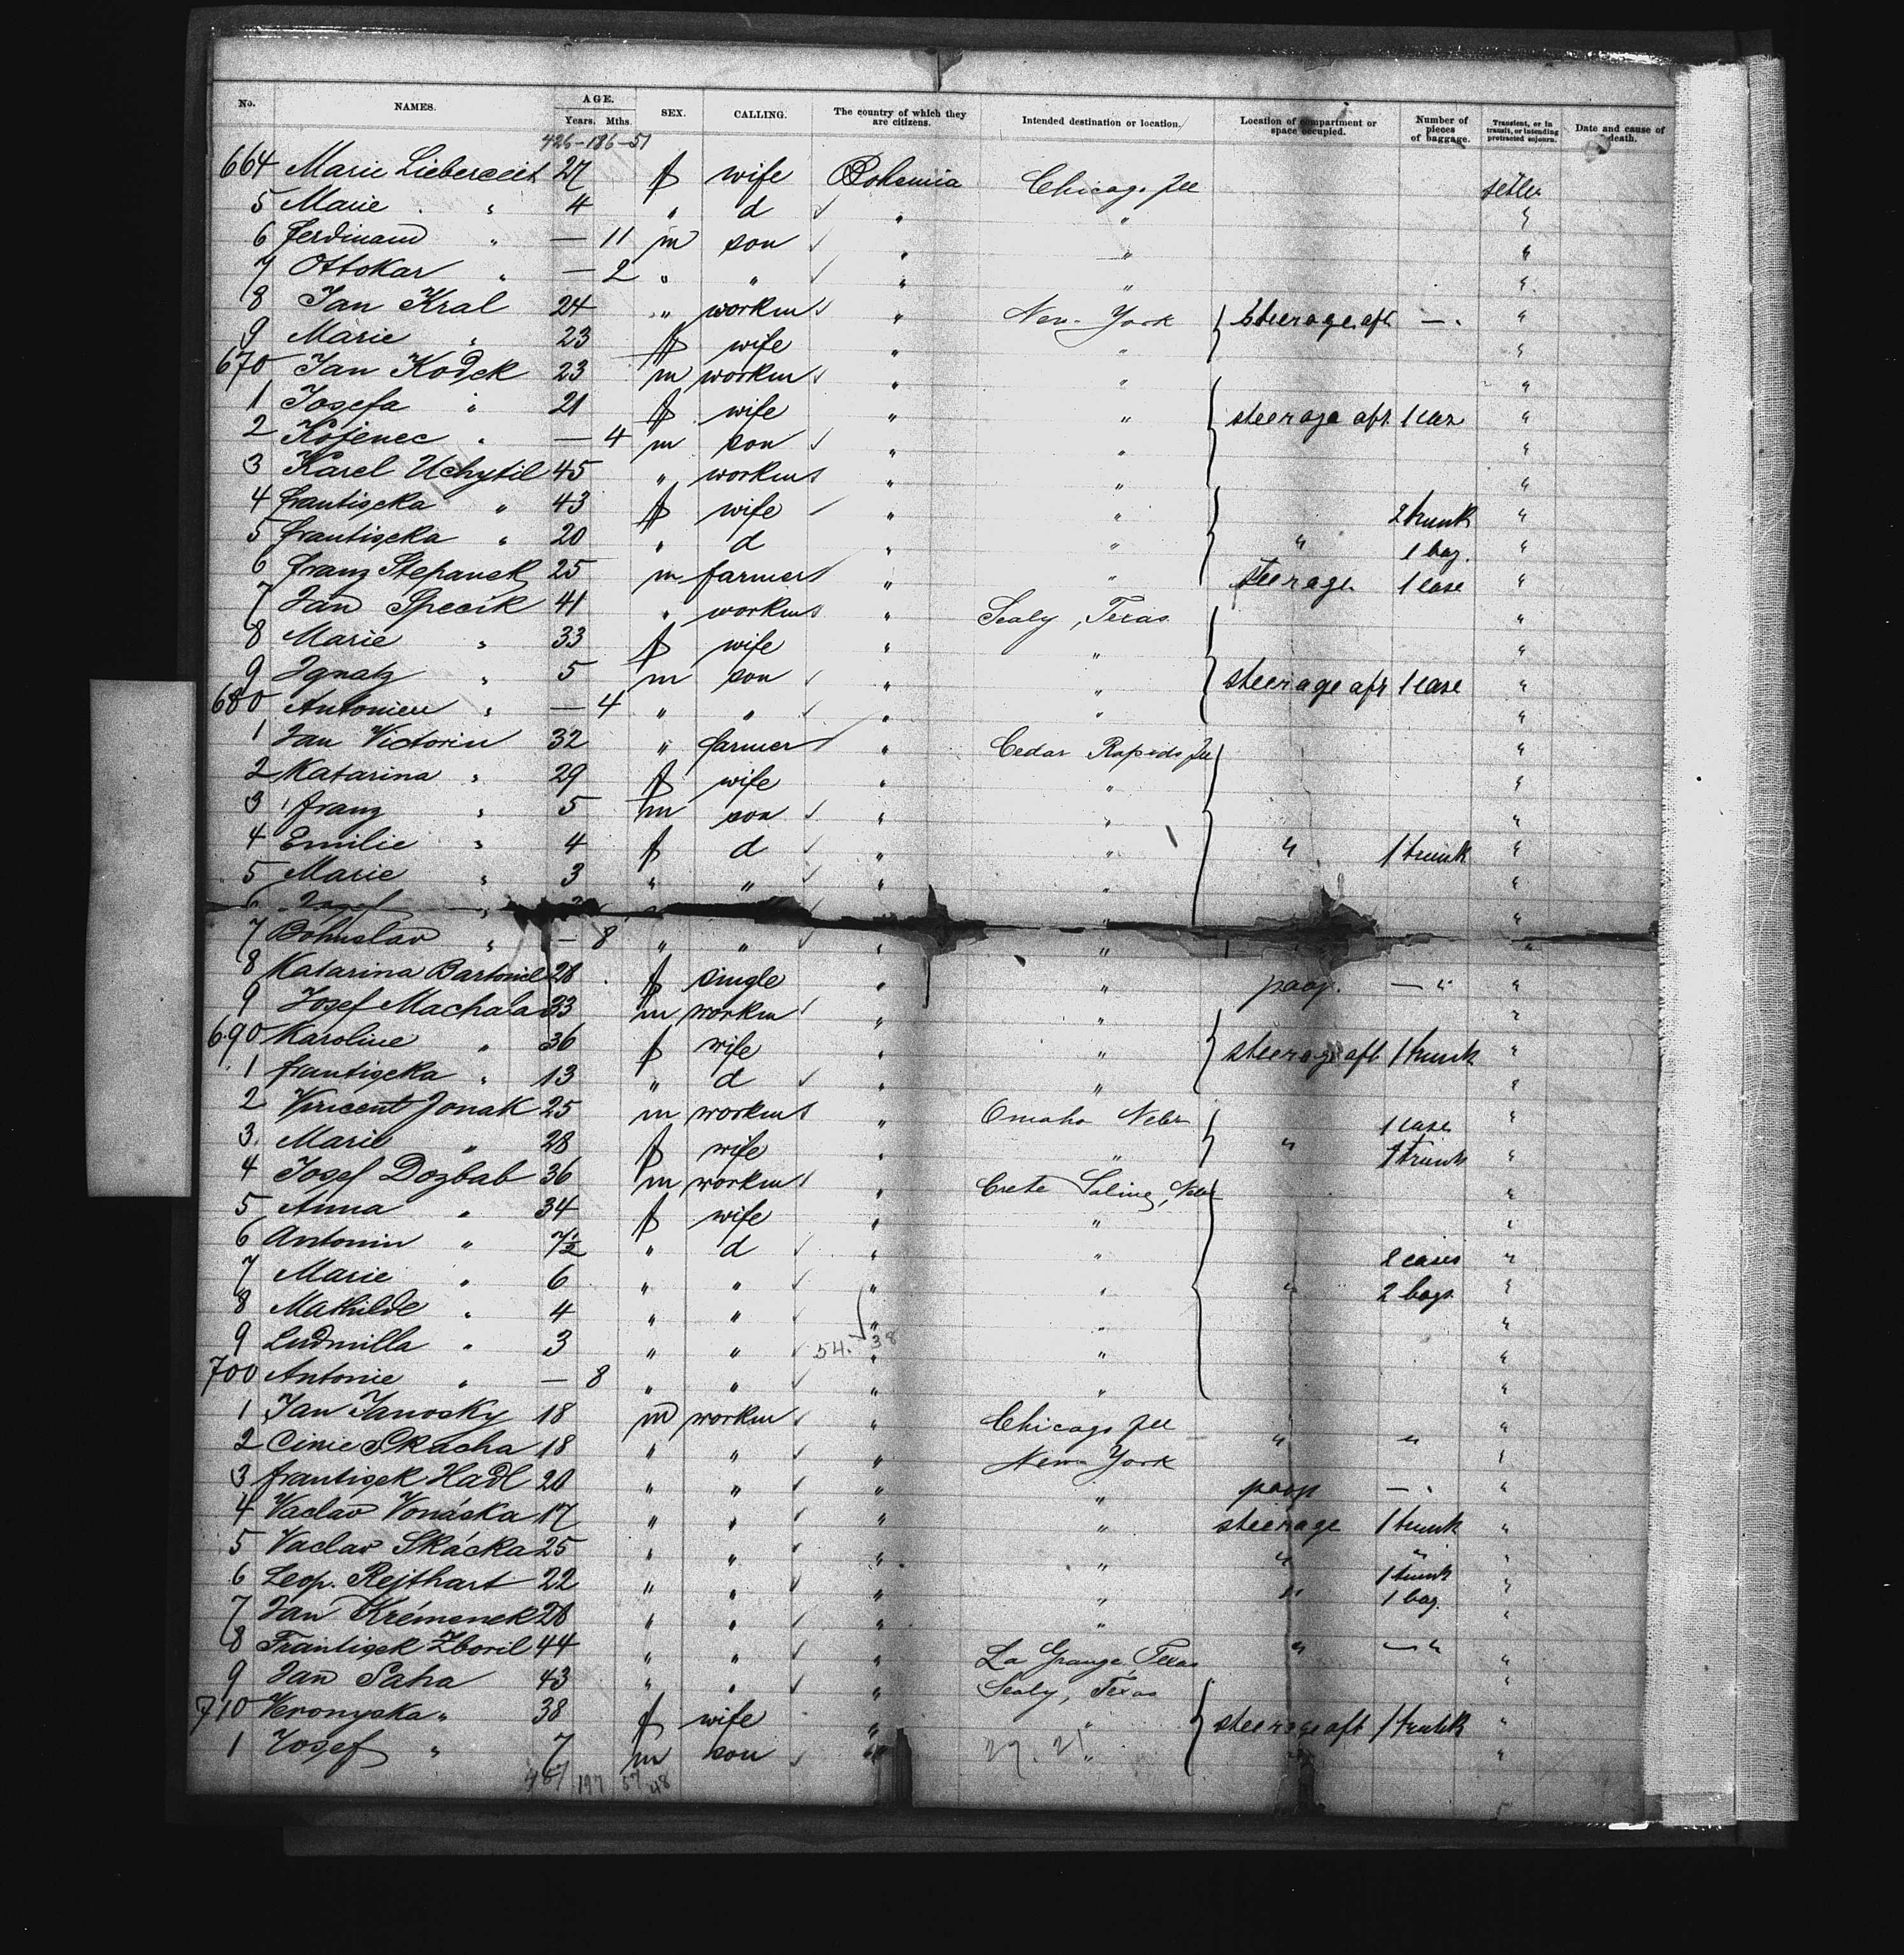 No. NAMES. AGE. Years. Mths. SEX. CALLING. The country of which they are citizens. Intended destination or location. Location of compartment or space occupied. Number of pieces of baggage. Transient, or in transit, or intending protracted sojourn. Date and cause of death.
426-186-51
664 Marie 27 f wife Bohemia Chicago Ill
5 Marie " 4 " d " "
6 Ferdinand " — 11 m son " " "
7 Ottokar " — 2 " " " " "
8 Jan Kral 24 " workm " New York Steerage aft — "
9 Marie " 23 f wife " " "
670 Jan Kodek 23 m workm " " "
1 Josefa " 21 f wife " " steerage aft 1 "
2 " — 4 m son " " "
3 Karel Uchytil 45 " workm " " "
4 Frantiscka " 43 f wife " " 2 trunk "
5 Frantiscka " 20 " d " " " 1 bag. "
6 Franz Stepanek 25 m farmer " " steerage 1 case "
7 Jan Specik 41 " workm " Sealy, Texas "
8 Marie " 33 f wife " " "
9 Ignatz " 5 m son " " steerage aft 1 case "
680 " — 4 " " " " "
1 Jan Victorin 32 " farmer " Cedar Rapids "
2 Katarina " 29 f wife " " "
3 Franz " 5 m son " " "
4 Emilie " 4 f d " " " 1 trunk "
5 Marie " 3 " " " " "
6 Josef " " "
7 Bohuslav " — 8 " " " " "
8 Katarina 28 f single " " poop. — " "
9 Josef Machala 33 m workm " " "
690 Karoline " 36 f wife " " steerage aft 1 trunk "
1 Frantiscka " 13 " d " " "
2 Vincent Jonak 25 m workm " Omaha Nebr 1 case "
3 Marie " 28 f wife " " " 1 trunk "
4 Josef Dozbab 36 m workm " Crete Saline, Nebr "
5 Anna " 34 f wife " " "
6 Antonin " 7½ " d " " 2 cases "
7 Marie " 6 " " " " " 2 bags "
8 Mathilde " 4 " " " " "
9 Ludmilla " 3 " " 54. 38 " " "
700 Antonie " — 8 " " " " "
1 Jan Janosky 18 m workm " Chicago Ill " " "
2 Skacha 18 " " " New York "
3 Frantisek Hadl 20 " " " " poop — " "
4 Vaclav Vonáska 17 " " " " steerage 1 trunk "
5 Vaclav Skácka 25 " " " " " " "
6 Leop. Rejthart 22 " " " " " 1 trunk 1 bag. "
7 Jan Krémenek 28 " " " " "
8 Frantisek Zboril 44 " " " La Grange, Texas " — " "
9 Jan Saha 43 " " " Sealy, Texas "
710 Veronyska " 38 f wife " " steerage aft 1 trunk "
1 Josef " 7 m son " 29. 21 " "
197 57 48